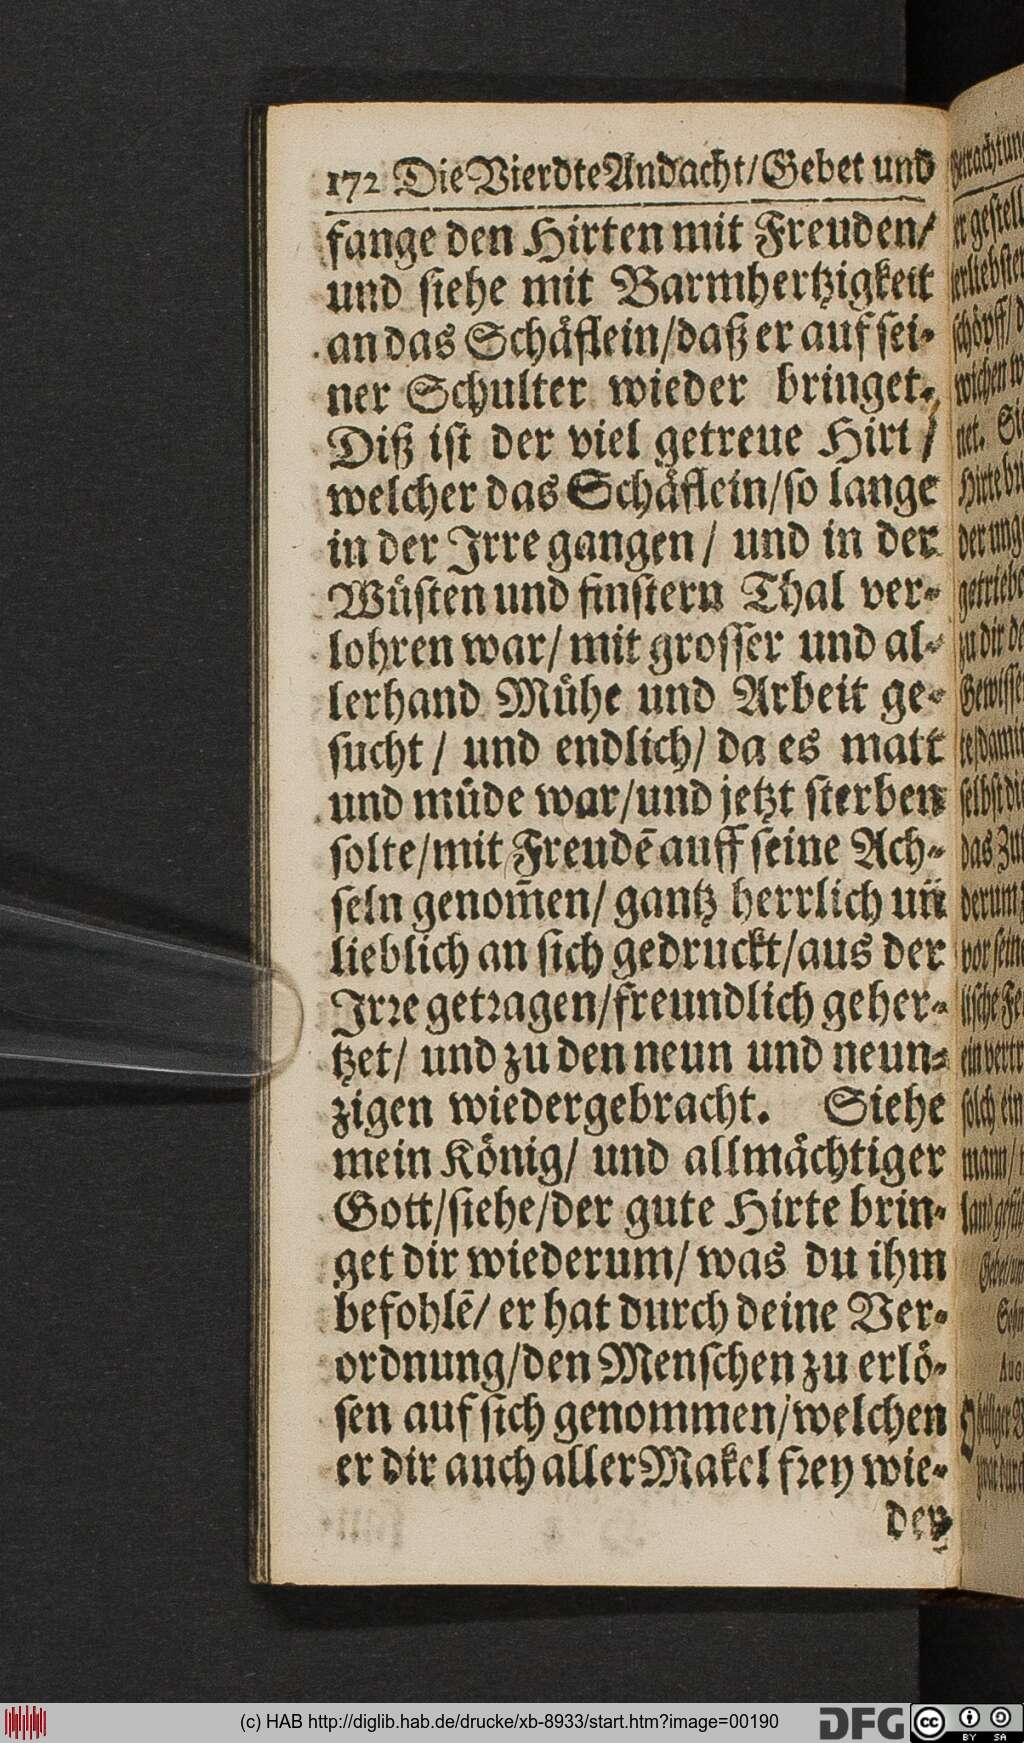 172 Die Vierdte Andacht/ Gebet und
fange den Hirten mit Freuden/
und siehe mit Barmhertzigkeit
an das Schäflein/ daß er auf sei-
ner Schulter wieder bringet.
Diß ist der viel getreue Hirt/
welcher das Schäflein/ so lange
in der Irre gangen/ und in der
Wüsten und finstern Thal ver-
lohren war/ mit grosser und al-
lerhand Mühe und Arbeit ge-
sucht/ und endlich/ da es matt
und müde war/ und jetzt sterben
solte/ mit Freudē auff seine Ach-
seln genom̃en/ gantz herrlich uñ
lieblich an sich gedruckt/ aus der
Irre getragen/ freundlich geher-
tzet/ und zu den neun und neun-
zigen wiedergebracht. Siehe
mein König/ und allmächtiger
Gott/ siehe/ der gute Hirte brin-
get dir wiederum/ was du ihm
befohlē/ er hat durch deine Ver-
ordnung/ den Menschen zu erlö-
sen auf sich genommen/ welchen
er dir auch aller Makel frey wie-
der
(c) HAB http://diglib.hab.de/drucke/xb-8933/start.htm?image=00190
DFG
cc BY SA